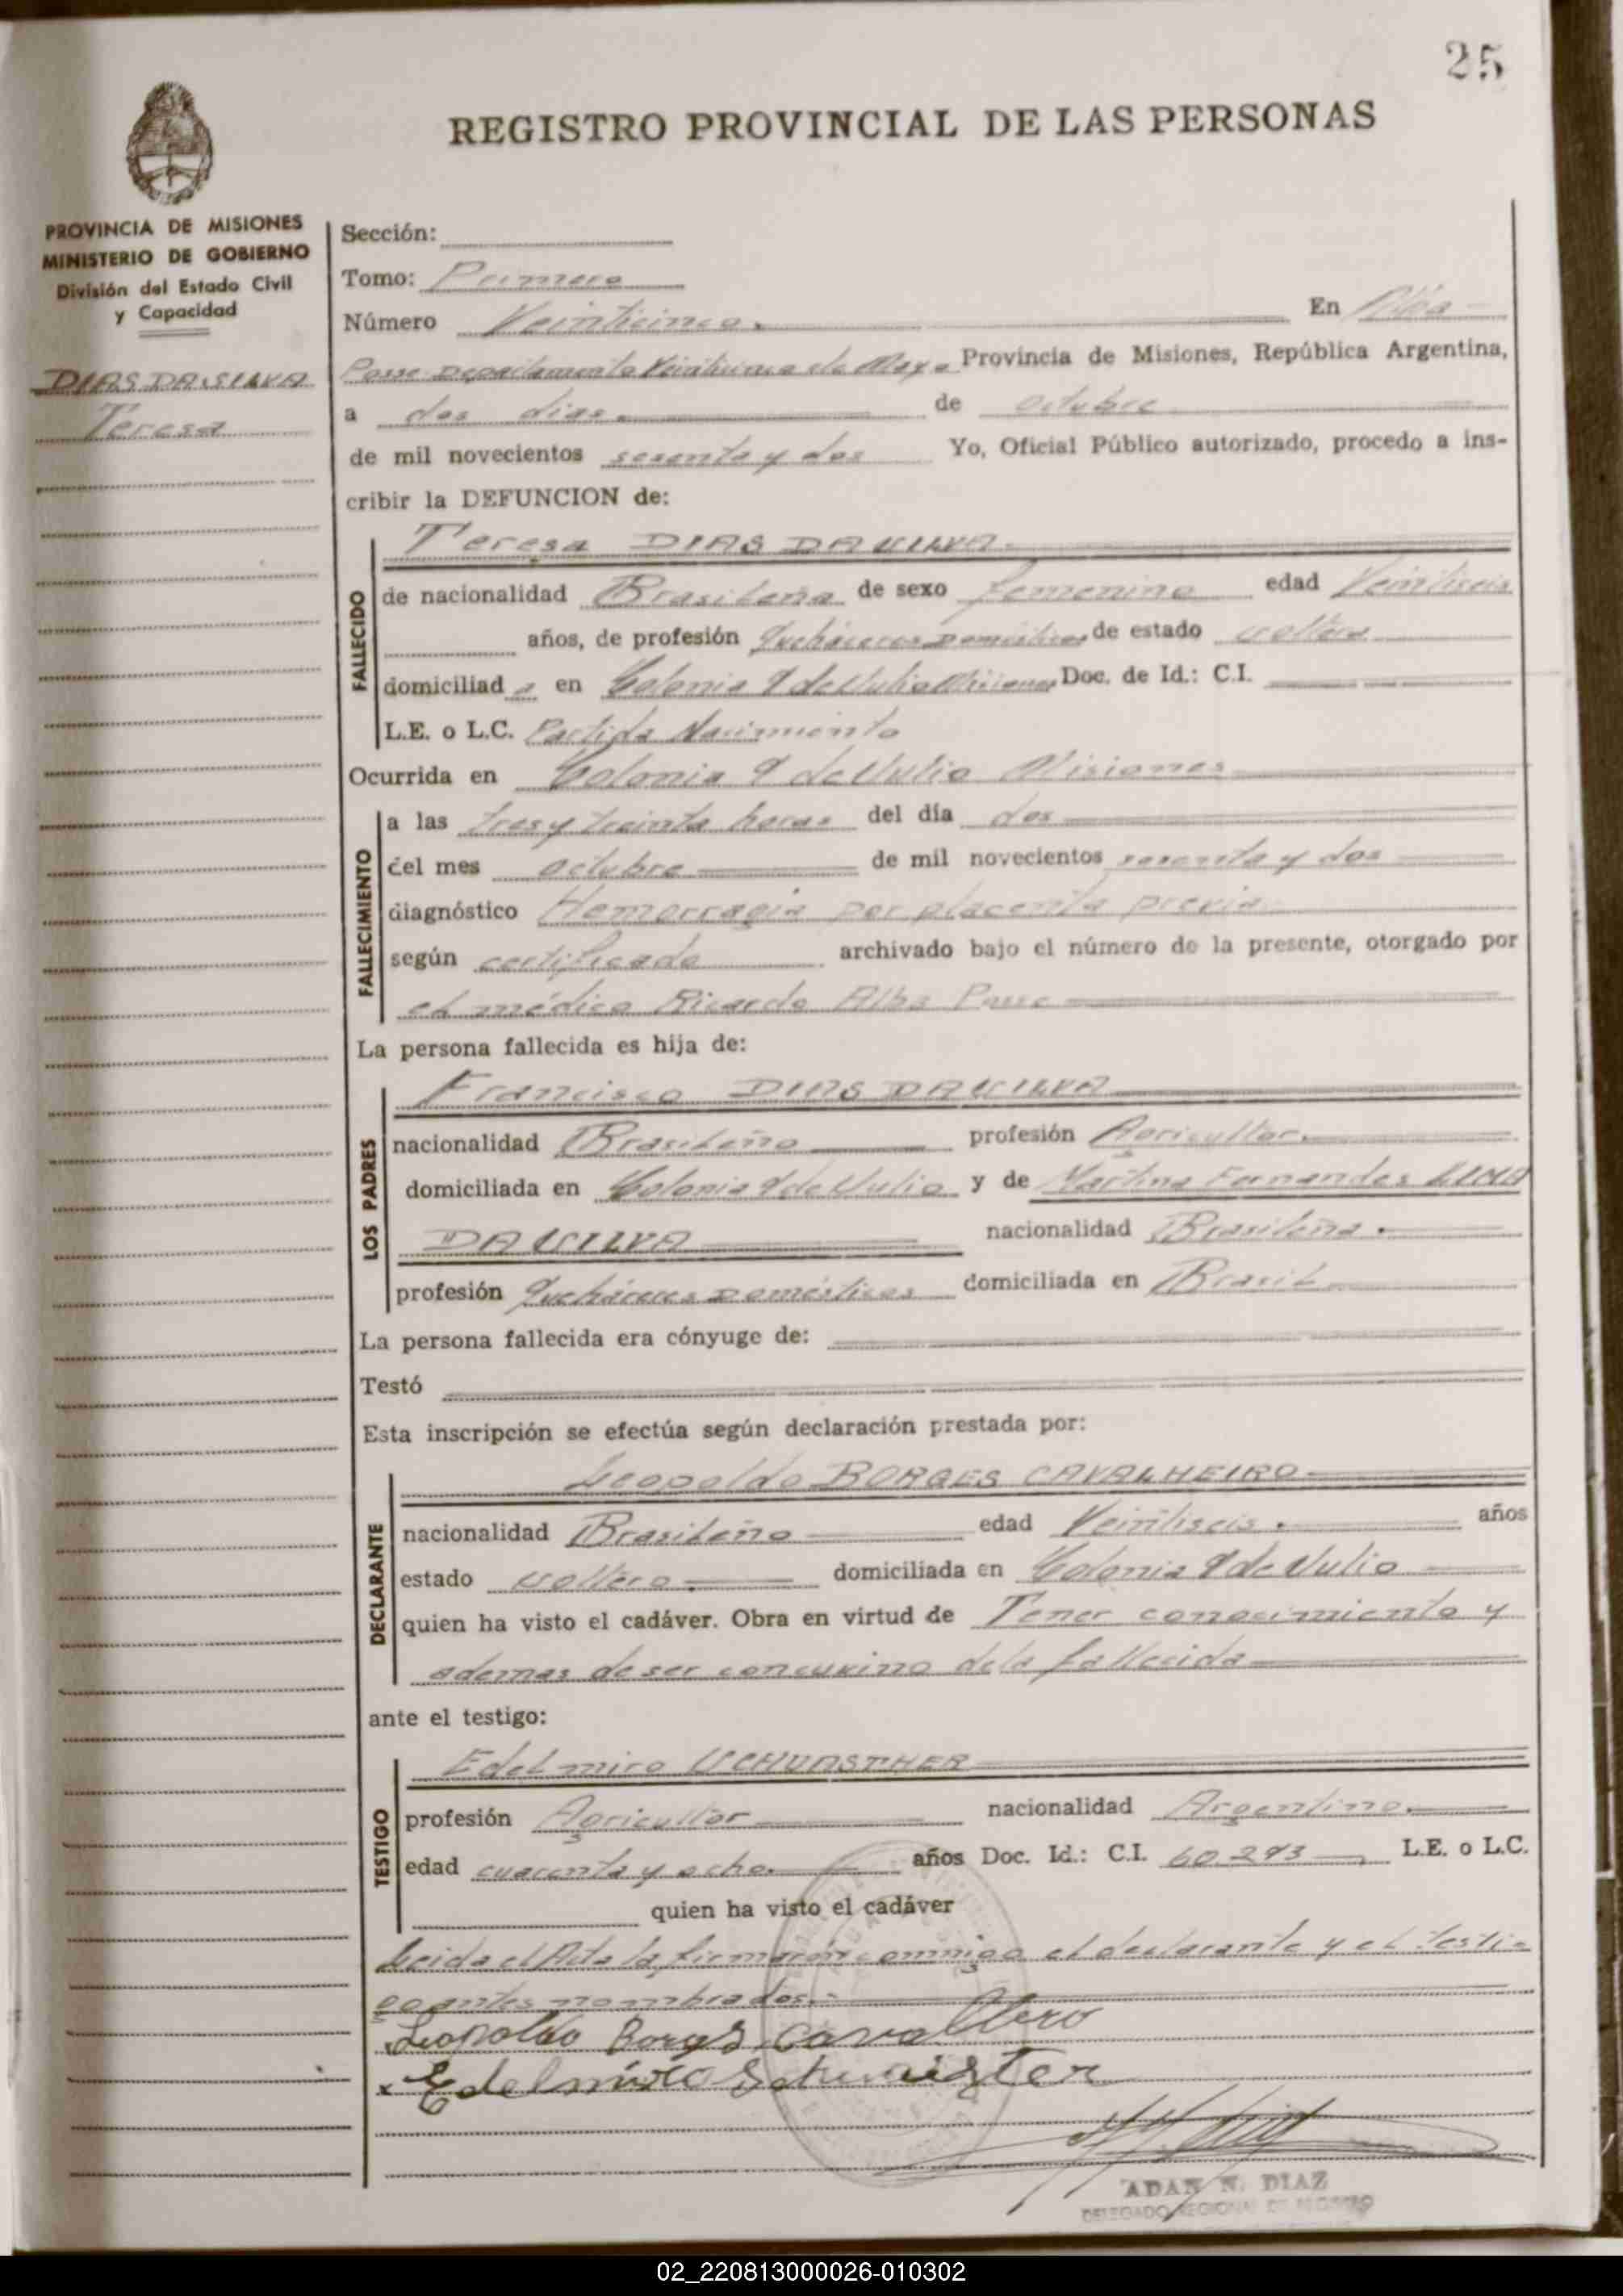 25
REGISTRO PROVINCIAL DE LAS PERSONAS
PROVINCIA DE MISIONES
MINISTERIO DE GOBIERNO
División del Estado Civil
y Capacidad
DIAS DA SILVA
Teresa
Sección:
Tomo: Primero
Número Veinticinco. En Alba
Posse Departamento Veinticinco de Mayo Provincia de Misiones, República Argentina,
a dos dias de octubre
de mil novecientos sesenta y dos Yo, Oficial Público autorizado, procedo a ins-
cribir la DEFUNCION de:
Teresa DIAS DA SILVA
FALLECIDO
de nacionalidad Brasileña de sexo femenino edad Veintiseis
años, de profesión Quehaceres Domésticos de estado soltera
domiciliad a en Colonia 9 de Julio Misiones Doc. de Id.: C.I.
L.E. o L.C. Partida Nacimiento
Ocurrida en Colonia 9 de Julio Misiones
FALLECIMIENTO
a las tres y treinta horas del día dos
del mes octubre de mil novecientos sesenta y dos
diagnóstico Hemorragia por placenta previa
según certificado archivado bajo el número de la presente, otorgado por
el médico Ricardo Alba Posse
La persona fallecida es hija de:
LOS PADRES
Francisco DIAS DA SILVA
nacionalidad Brasileño profesión Agricultor
domiciliada en Colonia 9 de Julio y de Martina Fernandes LIMA
DA SILVA nacionalidad Brasileña.
profesión Quehaceres Domésticos domiciliada en Brasil
La persona fallecida era cónyuge de:
Testó
Esta inscripción se efectúa según declaración prestada por:
DECLARANTE
Leopoldo BORGES CAVALHEIRO
nacionalidad Brasileño edad Veintiseis. años
estado soltero. domiciliada en Colonia 9 de Julio
quien ha visto el cadáver. Obra en virtud de Tener conocimiento y
ademas de ser concuvino dela fallecida
ante el testigo:
TESTIGO
Edelmiro
profesión Agricultor nacionalidad Argentino.
edad cuarenta y ocho. años Doc. Id.: C.I. 60.293 L.E. o L.C.
quien ha visto el cadáver
Leida el Acta la firmaron conmigo el declarante y el testi-
go antes nombrados.-
Leopoldo Borges
x Edelmiro
ADAN N. DIAZ
DELEGADO REGIONAL DE REGISTRO
02_220813000026-010302